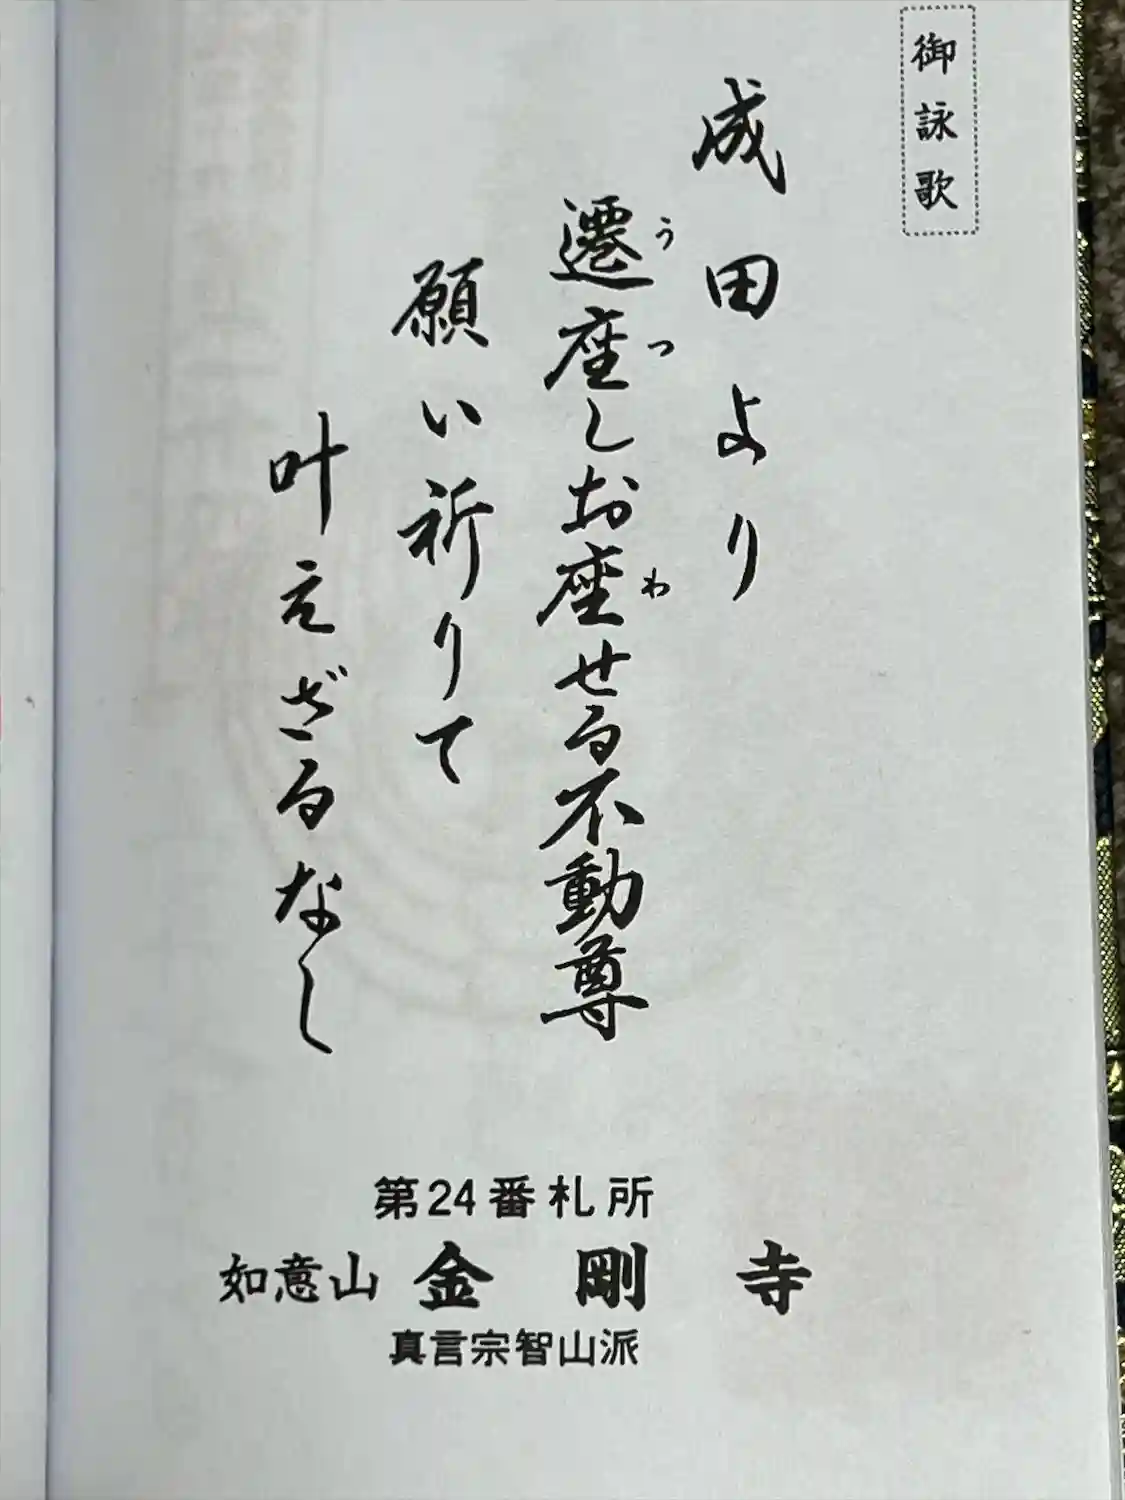 御詠歌
成田より
遷座しお座せる不動尊
うつ わ
願い祈りて
叶えざるなし
第24番札所
如意山 金剛寺
真言宗智山派